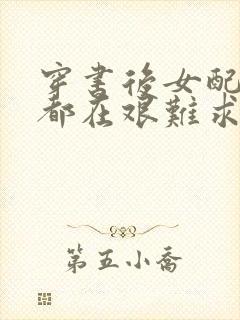 穿书后女配
都在艰难求
第五小喬